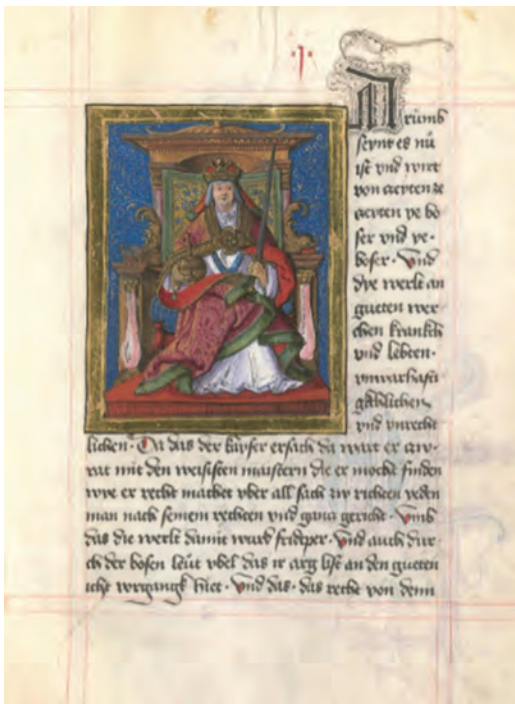 ·j·
Arumb
seynt es nu
ist vnd wirt
von zeyten ze
zeyten ye bo
ser vnd ye·
boser· Vnd
dye werlt an
gueten wer
chen krankch
vnd lebten·
vnwarhafti
gkhlichen
vnd vnrecht
lichen· Da das der kayser ersach da wart er
rat mit den weisisten maistern die er mocht finden
wye er recht machet vber all sach zw richten yeden
man nach seinem rechten vnd ganz gericht· Vmb
das die werlt damit wurd fridper· Vnd auch dur
ch der bosen leut vbel das ir arg list an den gueten
icht vorgangk hiet· Vnd das· das recht von dem